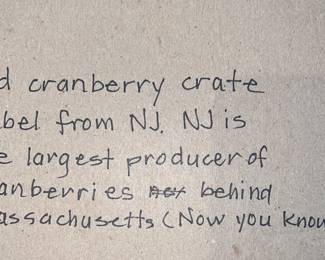 d cranberry crate
bel from NJ. NJ is
e largest producer of
anberries behind
assachusetts (Now you know